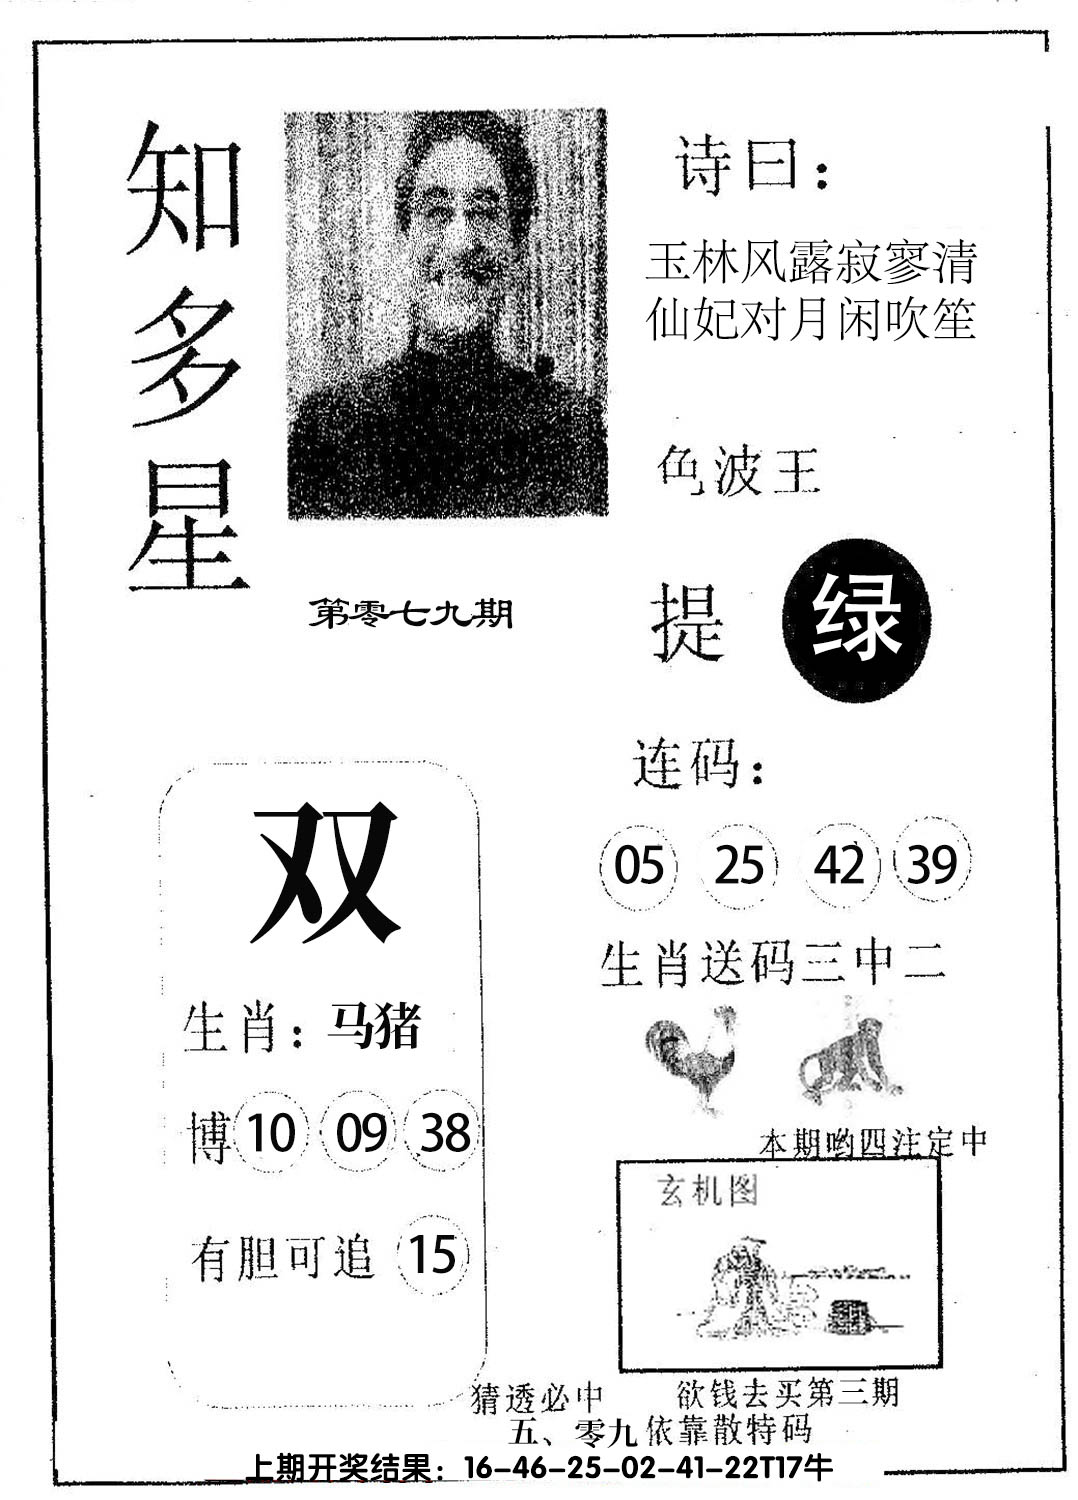 知多星
诗曰：
玉林风露寂寥清
仙妃对月闲吹笙
色波王
提 绿
第零七九期
连码：
05 25 42 39
生肖送码三中二
本期哟四注定中
玄机图
双
生肖：马猪
博 10 09 38
有胆可追 15
猜透必中 欲钱去买第三期
五、零九依靠散特码
上期开奖结果：16-46-25-02-41-22T17牛